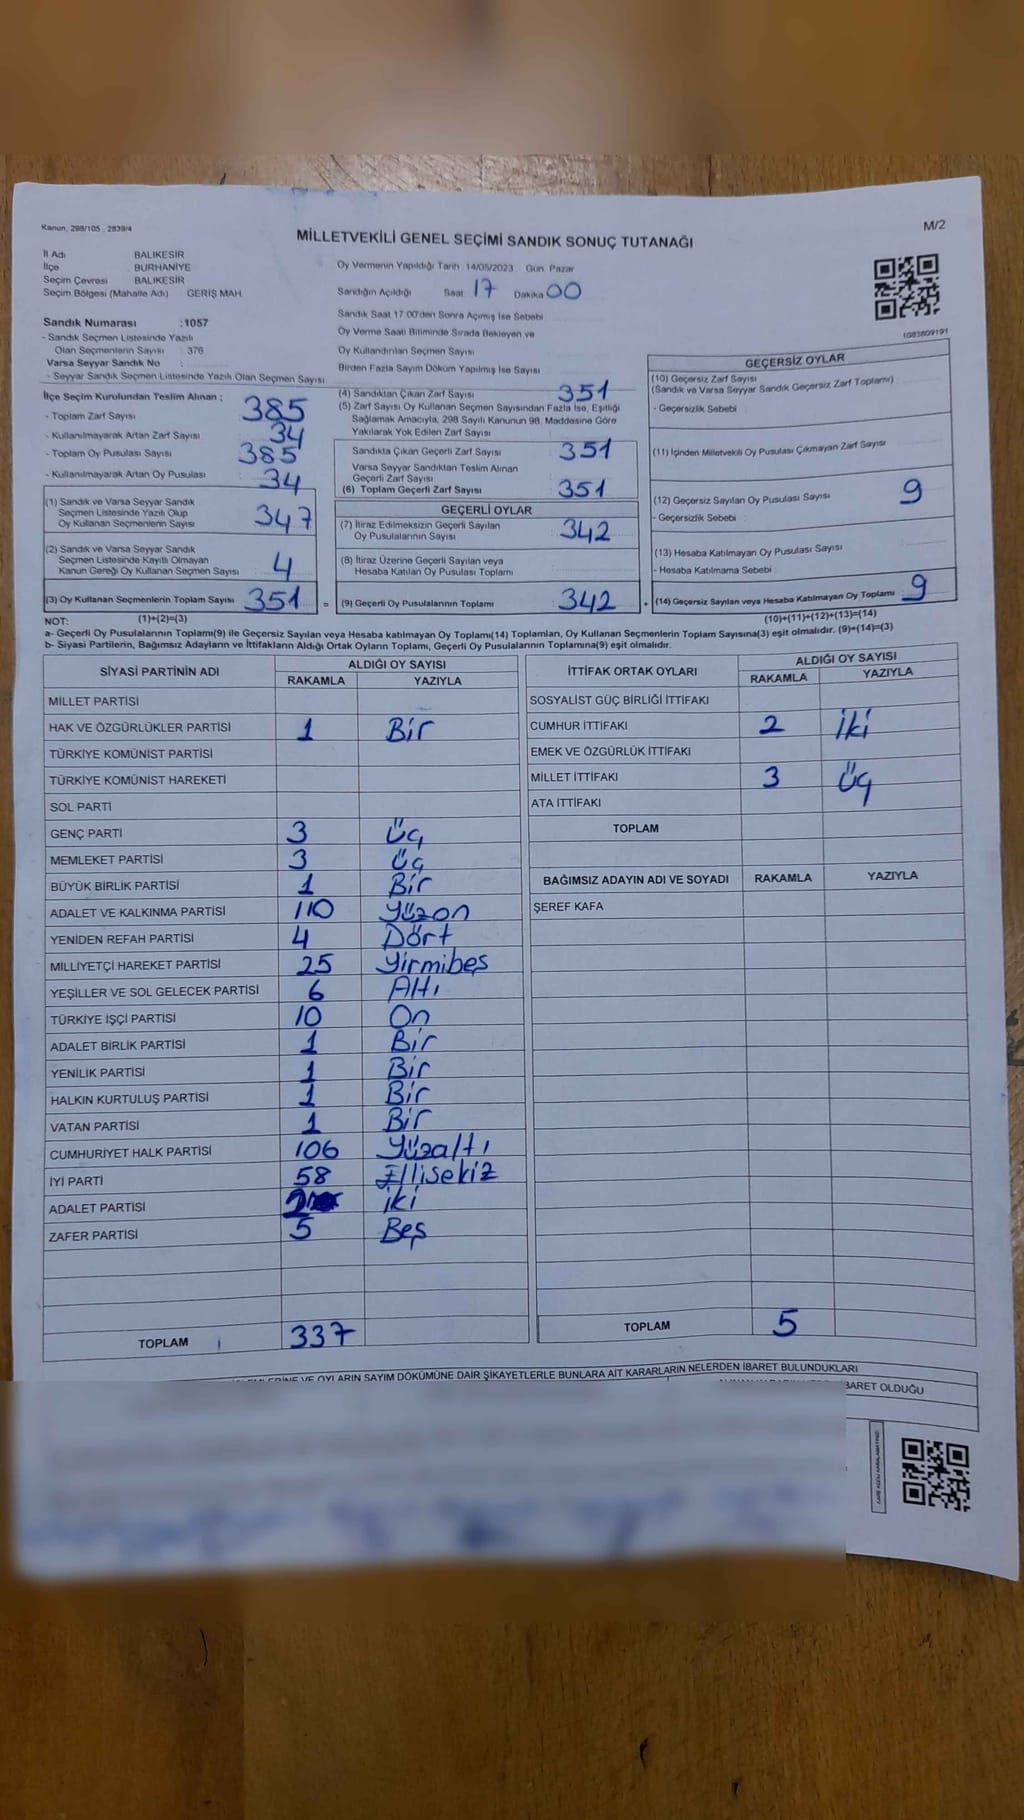 Kanun, 298/105 , 2839/4
M/2
MİLLETVEKİLİ GENEL SEÇİMİ SANDIK SONUÇ TUTANAĞI
İl Adı BALIKESİR
İlçe BURHANİYE
Seçim Çevresi BALIKESİR
Seçim Bölgesi (Mahalle Adı) GERİŞ MAH.
Oy Vermenin Yapıldığı Tarih 14/05/2023 Gün Pazar
Sandığın Açıldığı Saat 17 Dakika 00
Sandık Saat 17.00'den Sonra Açımış İse Sebebi
Oy Verme Saati Bitiminde Sırada Bekleyen ve
Oy Kullandırılan Seçmen Sayısı
Birden Fazla Sayım Döküm Yapılmış İse Sayısı
1083609191
Sandık Numarası :1057
- Sandık Seçmen Listesinde Yazılı
Olan Seçmenlerin Sayısı : 376
Varsa Seyyar Sandık No
- Seyyar Sandık Seçmen Listesinde Yazılı Olan Seçmen Sayısı
İlçe Seçim Kurulundan Teslim Alınan ;
- Toplam Zarf Sayısı 385
- Kullanılmayarak Artan Zarf Sayısı 34
- Toplam Oy Pusulası Sayısı 385
- Kullanılmayarak Artan Oy Pusulası : 34
(1) Sandık ve Varsa Seyyar Sandık
Seçmen Listesinde Yazılı Olup
Oy Kullanan Seçmenlerin Sayısı 347
(2) Sandık ve Varsa Seyyar Sandık
Seçmen Listesinde Kayıtlı Olmayan
Kanun Gereği Oy Kullanan Seçmen Sayısı 4
(3) Oy Kullanan Seçmenlerin Toplam Sayısı 351 =
(1)+(2)=(3)
(4) Sandıktan Çıkan Zarf Sayısı 351
(5) Zarf Sayısı Oy Kullanan Seçmen Sayısından Fazla İse, Eşitliği
Sağlamak Amacıyla, 298 Sayılı Kanunun 98. Maddesine Göre
Yakılarak Yok Edilen Zarf Sayısı
Sandıkta Çıkan Geçerli Zarf Sayısı 351
Varsa Seyyar Sandıktan Teslim Alınan
Geçerli Zarf Sayısı
(6) Toplam Geçerli Zarf Sayısı 351
GEÇERLİ OYLAR
(7) İtiraz Edilmeksizin Geçerli Sayılan
Oy Pusulalarının Sayısı 342
(8) İtiraz Üzerine Geçerli Sayılan veya
Hesaba Katılan Oy Pusulası Toplamı
(9) Geçerli Oy Pusulalarının Toplamı 342 +
GEÇERSİZ OYLAR
(10) Geçersiz Zarf Sayısı
(Sandık ve Varsa Seyyar Sandık Geçersiz Zarf Toplamı)
- Geçersizlik Sebebi
(11) İçinden Milletvekili Oy Pusulası Çıkmayan Zarf Sayısı
(12) Geçersiz Sayılan Oy Pusulası Sayısı 9
- Geçersizlik Sebebi :
(13) Hesaba Katılmayan Oy Pusulası Sayısı
- Hesaba Katılmama Sebebi :
(14) Geçersiz Sayılan veya Hesaba Katılmayan Oy Toplamı 9
(10)+(11)+(12)+(13)=(14)
NOT:
a- Geçerli Oy Pusulalarının Toplamı(9) ile Geçersiz Sayılan veya Hesaba katılmayan Oy Toplamı(14) Toplamları, Oy Kullanan Seçmenlerin Toplam Sayısına(3) eşit olmalıdır. (9)+(14)=(3)
b- Siyasi Partilerin, Bağımsız Adayların ve İttifakların Aldığı Ortak Oyların Toplamı, Geçerli Oy Pusulalarının Toplamına(9) eşit olmalıdır.
SİYASİ PARTİNİN ADI ALDIĞI OY SAYISI
RAKAMLA YAZIYLA
MİLLET PARTİSİ
HAK VE ÖZGÜRLÜKLER PARTİSİ 1 Bir
TÜRKİYE KOMÜNİST PARTİSİ
TÜRKİYE KOMÜNİST HAREKETİ
SOL PARTİ
GENÇ PARTİ 3 Üç
MEMLEKET PARTİSİ 3 Üç
BÜYÜK BİRLİK PARTİSİ 1 Bir
ADALET VE KALKINMA PARTİSİ 110 Yüzon
YENİDEN REFAH PARTİSİ 4 Dört
MİLLİYETÇİ HAREKET PARTİSİ 25 Yirmibeş
YEŞİLLER VE SOL GELECEK PARTİSİ 6 Altı
TÜRKİYE İŞÇİ PARTİSİ 10 On
ADALET BİRLİK PARTİSİ 1 Bir
YENİLİK PARTİSİ 1 Bir
HALKIN KURTULUŞ PARTİSİ 1 Bir
VATAN PARTİSİ 1 Bir
CUMHURİYET HALK PARTİSİ 106 Yüzaltı
İYİ PARTİ 58 Ellisekiz
ADALET PARTİSİ 2 iki
ZAFER PARTİSİ 5 Beş
TOPLAM 337
İTTİFAK ORTAK OYLARI ALDIĞI OY SAYISI
RAKAMLA YAZIYLA
SOSYALİST GÜÇ BİRLİĞİ İTTİFAKI
CUMHUR İTTİFAKI 2 İki
EMEK VE ÖZGÜRLÜK İTTİFAKI
MİLLET İTTİFAKI 3 Üç
ATA İTTİFAKI
TOPLAM
BAĞIMSIZ ADAYIN ADI VE SOYADI RAKAMLA YAZIYLA
ŞEREF KAFA
TOPLAM 5
VE OYLARIN SAYIM DÖKÜMÜNE DAİR ŞİKAYETLERLE BUNLARA AİT KARARLARIN NELERDEN İBARET BULUNDUKLARI
OLDUĞU